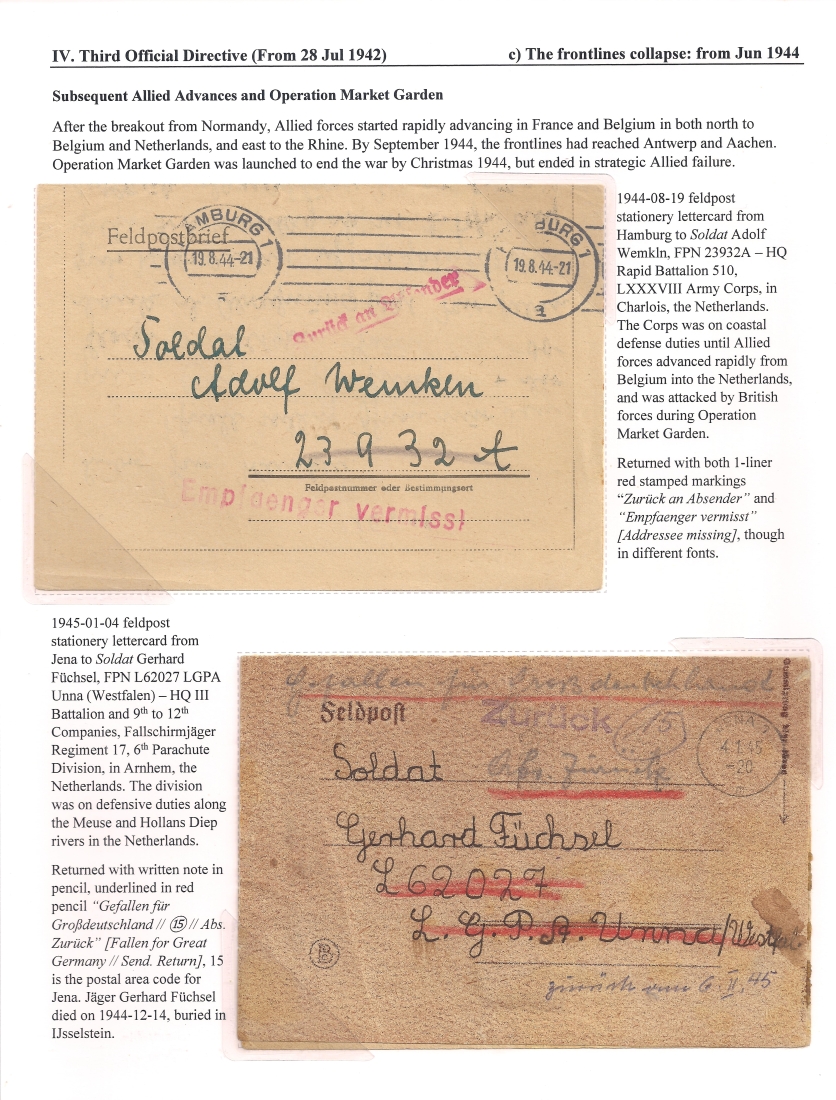 IV. Third Official Directive (From 28 Jul 1942) c) The frontlines collapse: from Jun 1944
Subsequent Allied Advances and Operation Market Garden
After the breakout from Normandy, Allied forces started rapidly advancing in France and Belgium in both north to
Belgium and Netherlands, and east to the Rhine. By September 1944, the frontlines had reached Antwerp and Aachen.
Operation Market Garden was launched to end the war by Christmas 1944, but ended in strategic Allied failure.
AMBURG 1
19.8.44-21
BURG 1
19.8.44-21
a
Feldpostbrief
Zurück an Absender
Soldat
Adolf Wemken
23932 A
Feldpostnummer oder Bestimmungsort
Empfaenger vermisst
1944-08-19 feldpost
stationery lettercard from
Hamburg to Soldat Adolf
Wemkln, FPN 23932A – HQ
Rapid Battalion 510,
LXXXVIII Army Corps, in
Charlois, the Netherlands.
The Corps was on coastal
defense duties until Allied
forces advanced rapidly from
Belgium into the Netherlands,
and was attacked by British
forces during Operation
Market Garden.
Returned with both 1-liner
red stamped markings
“Zurück an Absender” and
“Empfaenger vermisst”
[Addressee missing], though
in different fonts.
1945-01-04 feldpost
stationery lettercard from
Jena to Soldat Gerhard
Füchsel, FPN L62027 LGPA
Unna (Westfalen) – HQ III
Battalion and 9th to 12th
Companies, Fallschirmjäger
Regiment 17, 6th Parachute
Division, in Arnhem, the
Netherlands. The division
was on defensive duties along
the Meuse and Hollans Diep
rivers in the Netherlands.
Returned with written note in
pencil, underlined in red
pencil “Gefallen für
Großdeutschland // ⑮ // Abs.
Zurück” [Fallen for Great
Germany // Send. Return], 15
is the postal area code for
Jena. Jäger Gerhard Füchsel
died on 1944-12-14, buried in
IJsselstein.
Gefallen für Großdeutschland
Feldpost
Zurück
15
JENA
4.1.45
-20
Soldat
Abs. Zurück
Gerhard Füchsel
L 62027
L. G. P. A. Unna/Westfalen
zurück am 6. II. 45